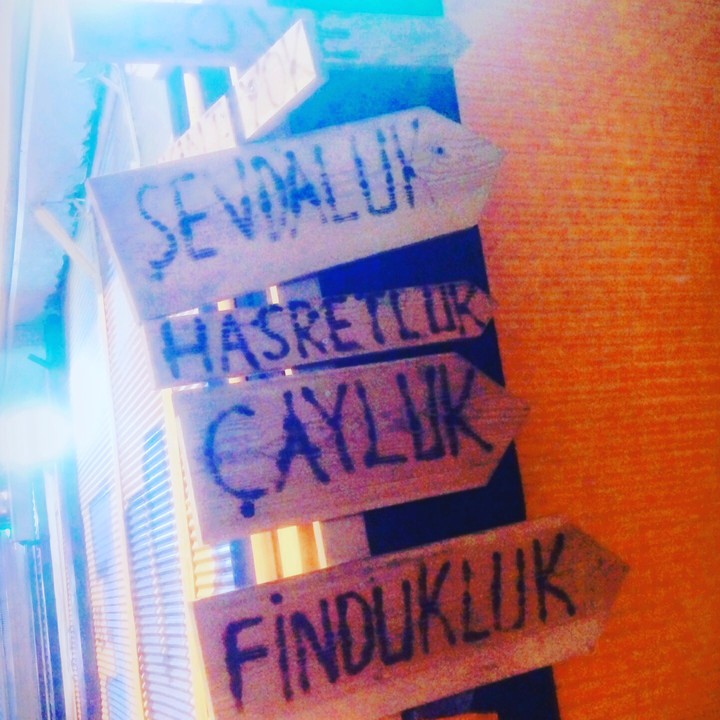 ŞEVDALUK
HASRETLUK
ÇAYLUK
FİNDUKLUK